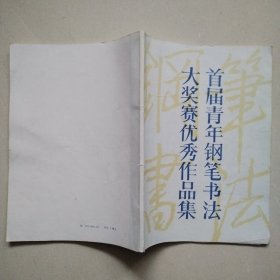 首届青年钢笔书法
大奖赛优秀作品集
筆法
鋼書